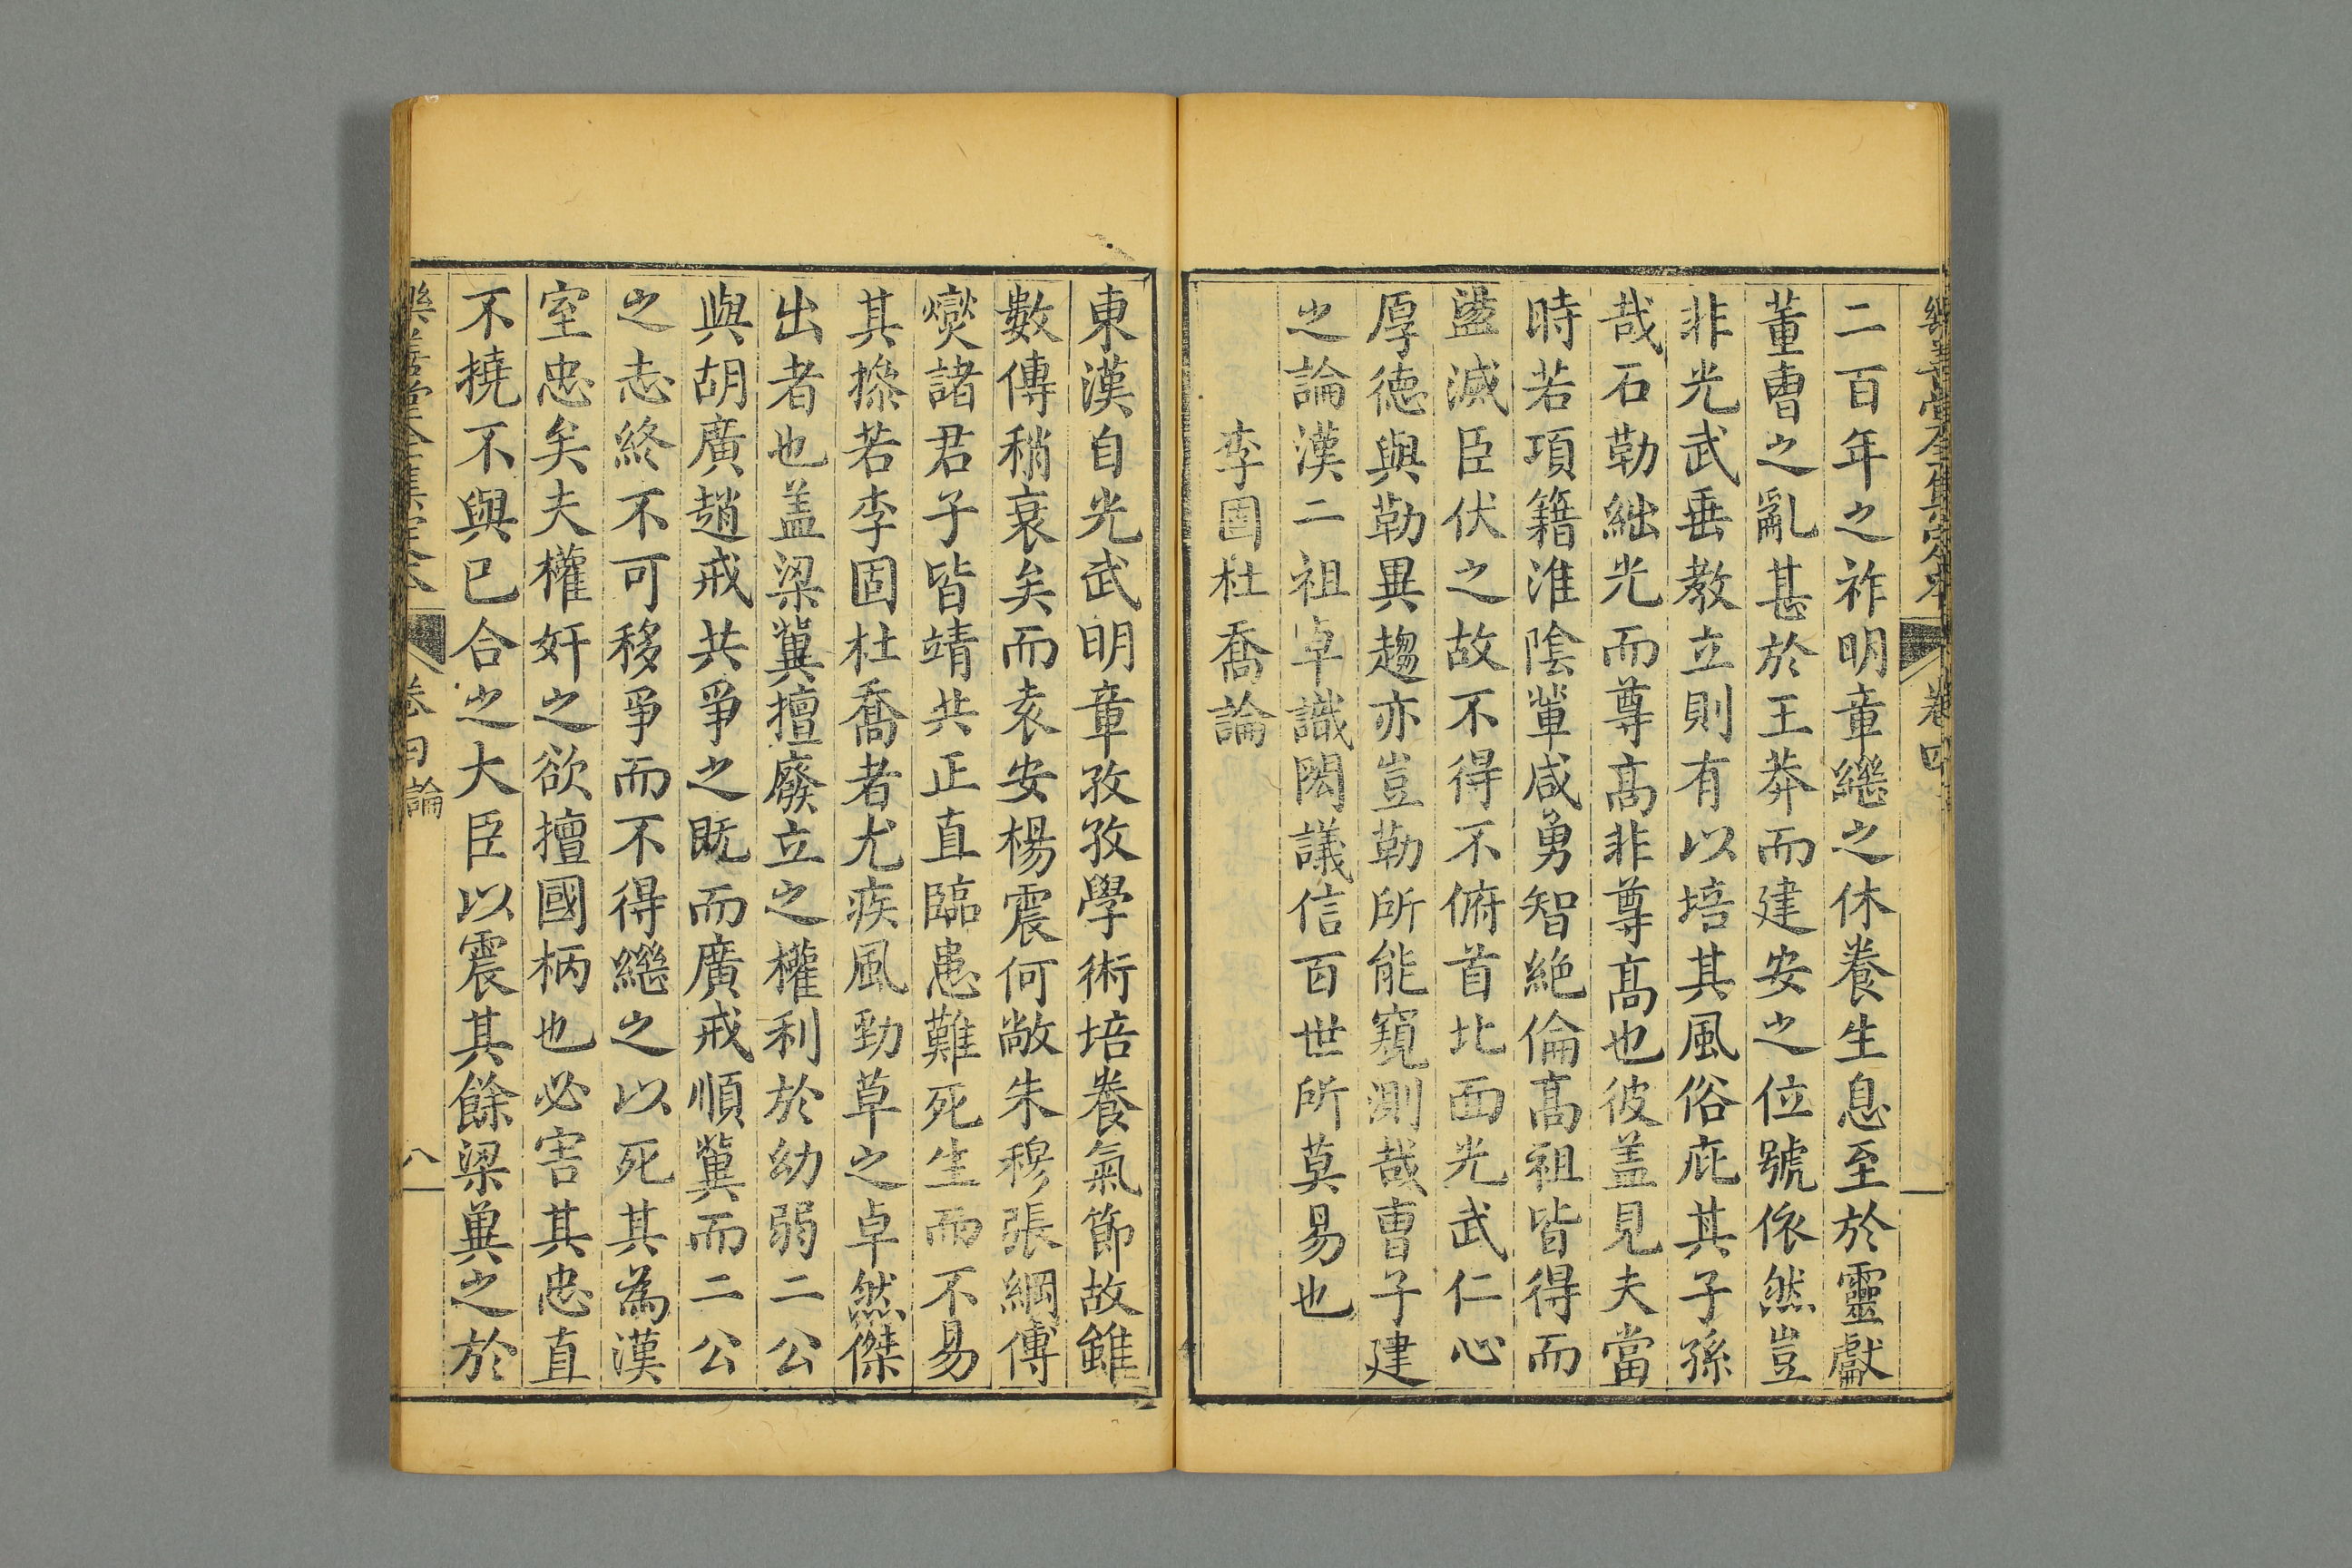 樂善堂全集定本 卷四
二百年之祚明章繼之休養生息至於靈獻
董曹之亂甚於王莽而建安之位號依然豈
非光武垂教立則有以培其風俗庇其子孫
哉石勒絀光而尊髙非尊髙也彼盖見夫當
時若項籍淮陰軰咸勇智絶倫髙祖皆得而
盪滅臣伏之故不得不俯首北面光武仁心
厚德與勒異趨亦豈勒所能窺測哉曹子建
之論漢二祖卓識閎議信百世所莫易也
李固杜喬論
東漢自光武明章孜孜學術培養氣節故雖
數傳稍衰矣而袁安楊震何敞朱穆張綱傅
燮諸君子皆靖共正直臨患難死生而不易
其操若李固杜喬者尤疾風勁草之卓然傑
出者也盖梁冀擅廢立之權利於幼弱二公
與胡廣趙戒共爭之既而廣戒順冀而二公
之志終不可移爭而不得繼之以死其為漢
室忠矣夫權奸之欲擅國柄也必害其忠直
不撓不與已合之大臣以震其餘梁冀之於
樂善堂全集定本 卷四論 八